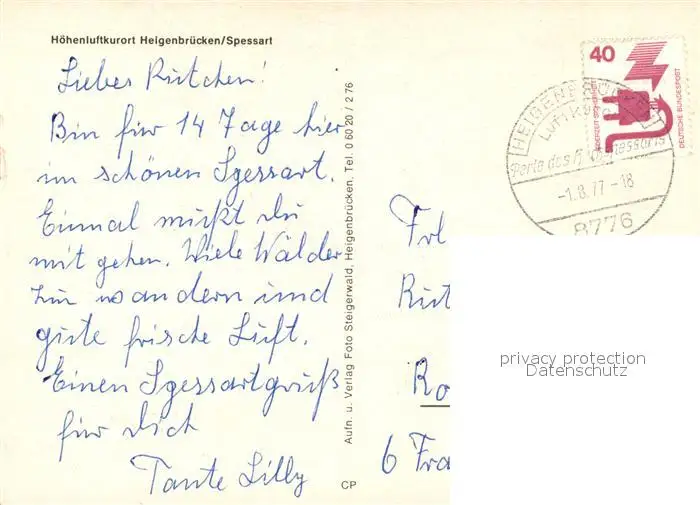 Höhenluftkurort Heigenbrücken/Spessart
Liebes Rutchen!
Bin für 14 Tage hier
im schönen Spessart.
Einmal mußt du
mit gehen. Viele Wälder
zum wandern und
gute frische Luft.
Einen Spessartgruß
für Dich
Tante Lilly
Aufn. u. Verlag Foto Steigerwald, Heigenbrücken, Tel. 0 60 20 / 2 76
CP
40
JEDERZEIT SICHERHEIT
DEUTSCHE BUNDESPOST
HEIGENBRÜCKEN
Perle des
-1.8.77-18
8776
Frl
Rut
Ro
6 Fra
privacy protection
Datenschutz